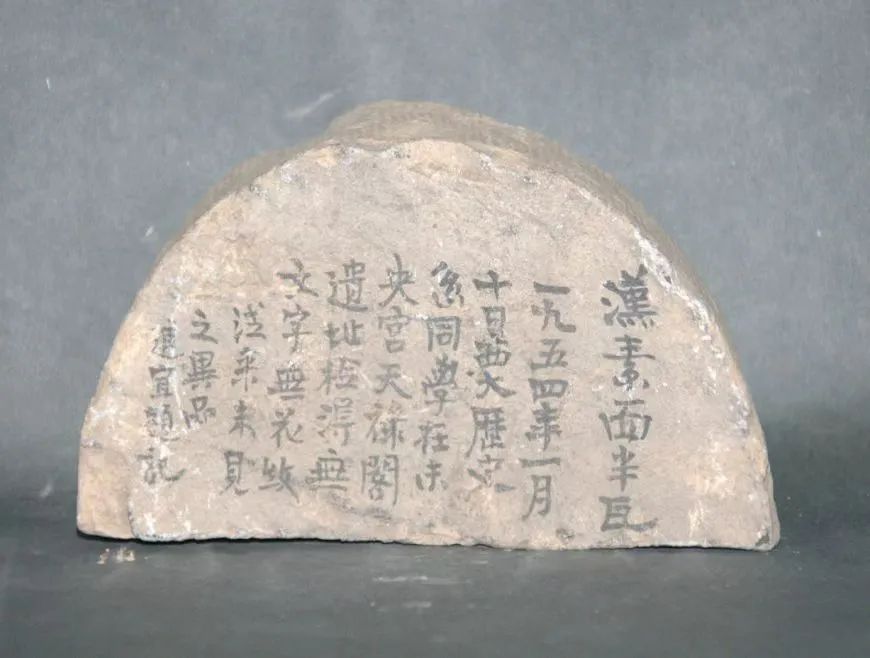 漢素面半瓦
一九五四年一月
十日西大歷史
系同學在未
央宮天祿閣
遺址檢得無
文字無花紋
來未見
之異品
進宜題記